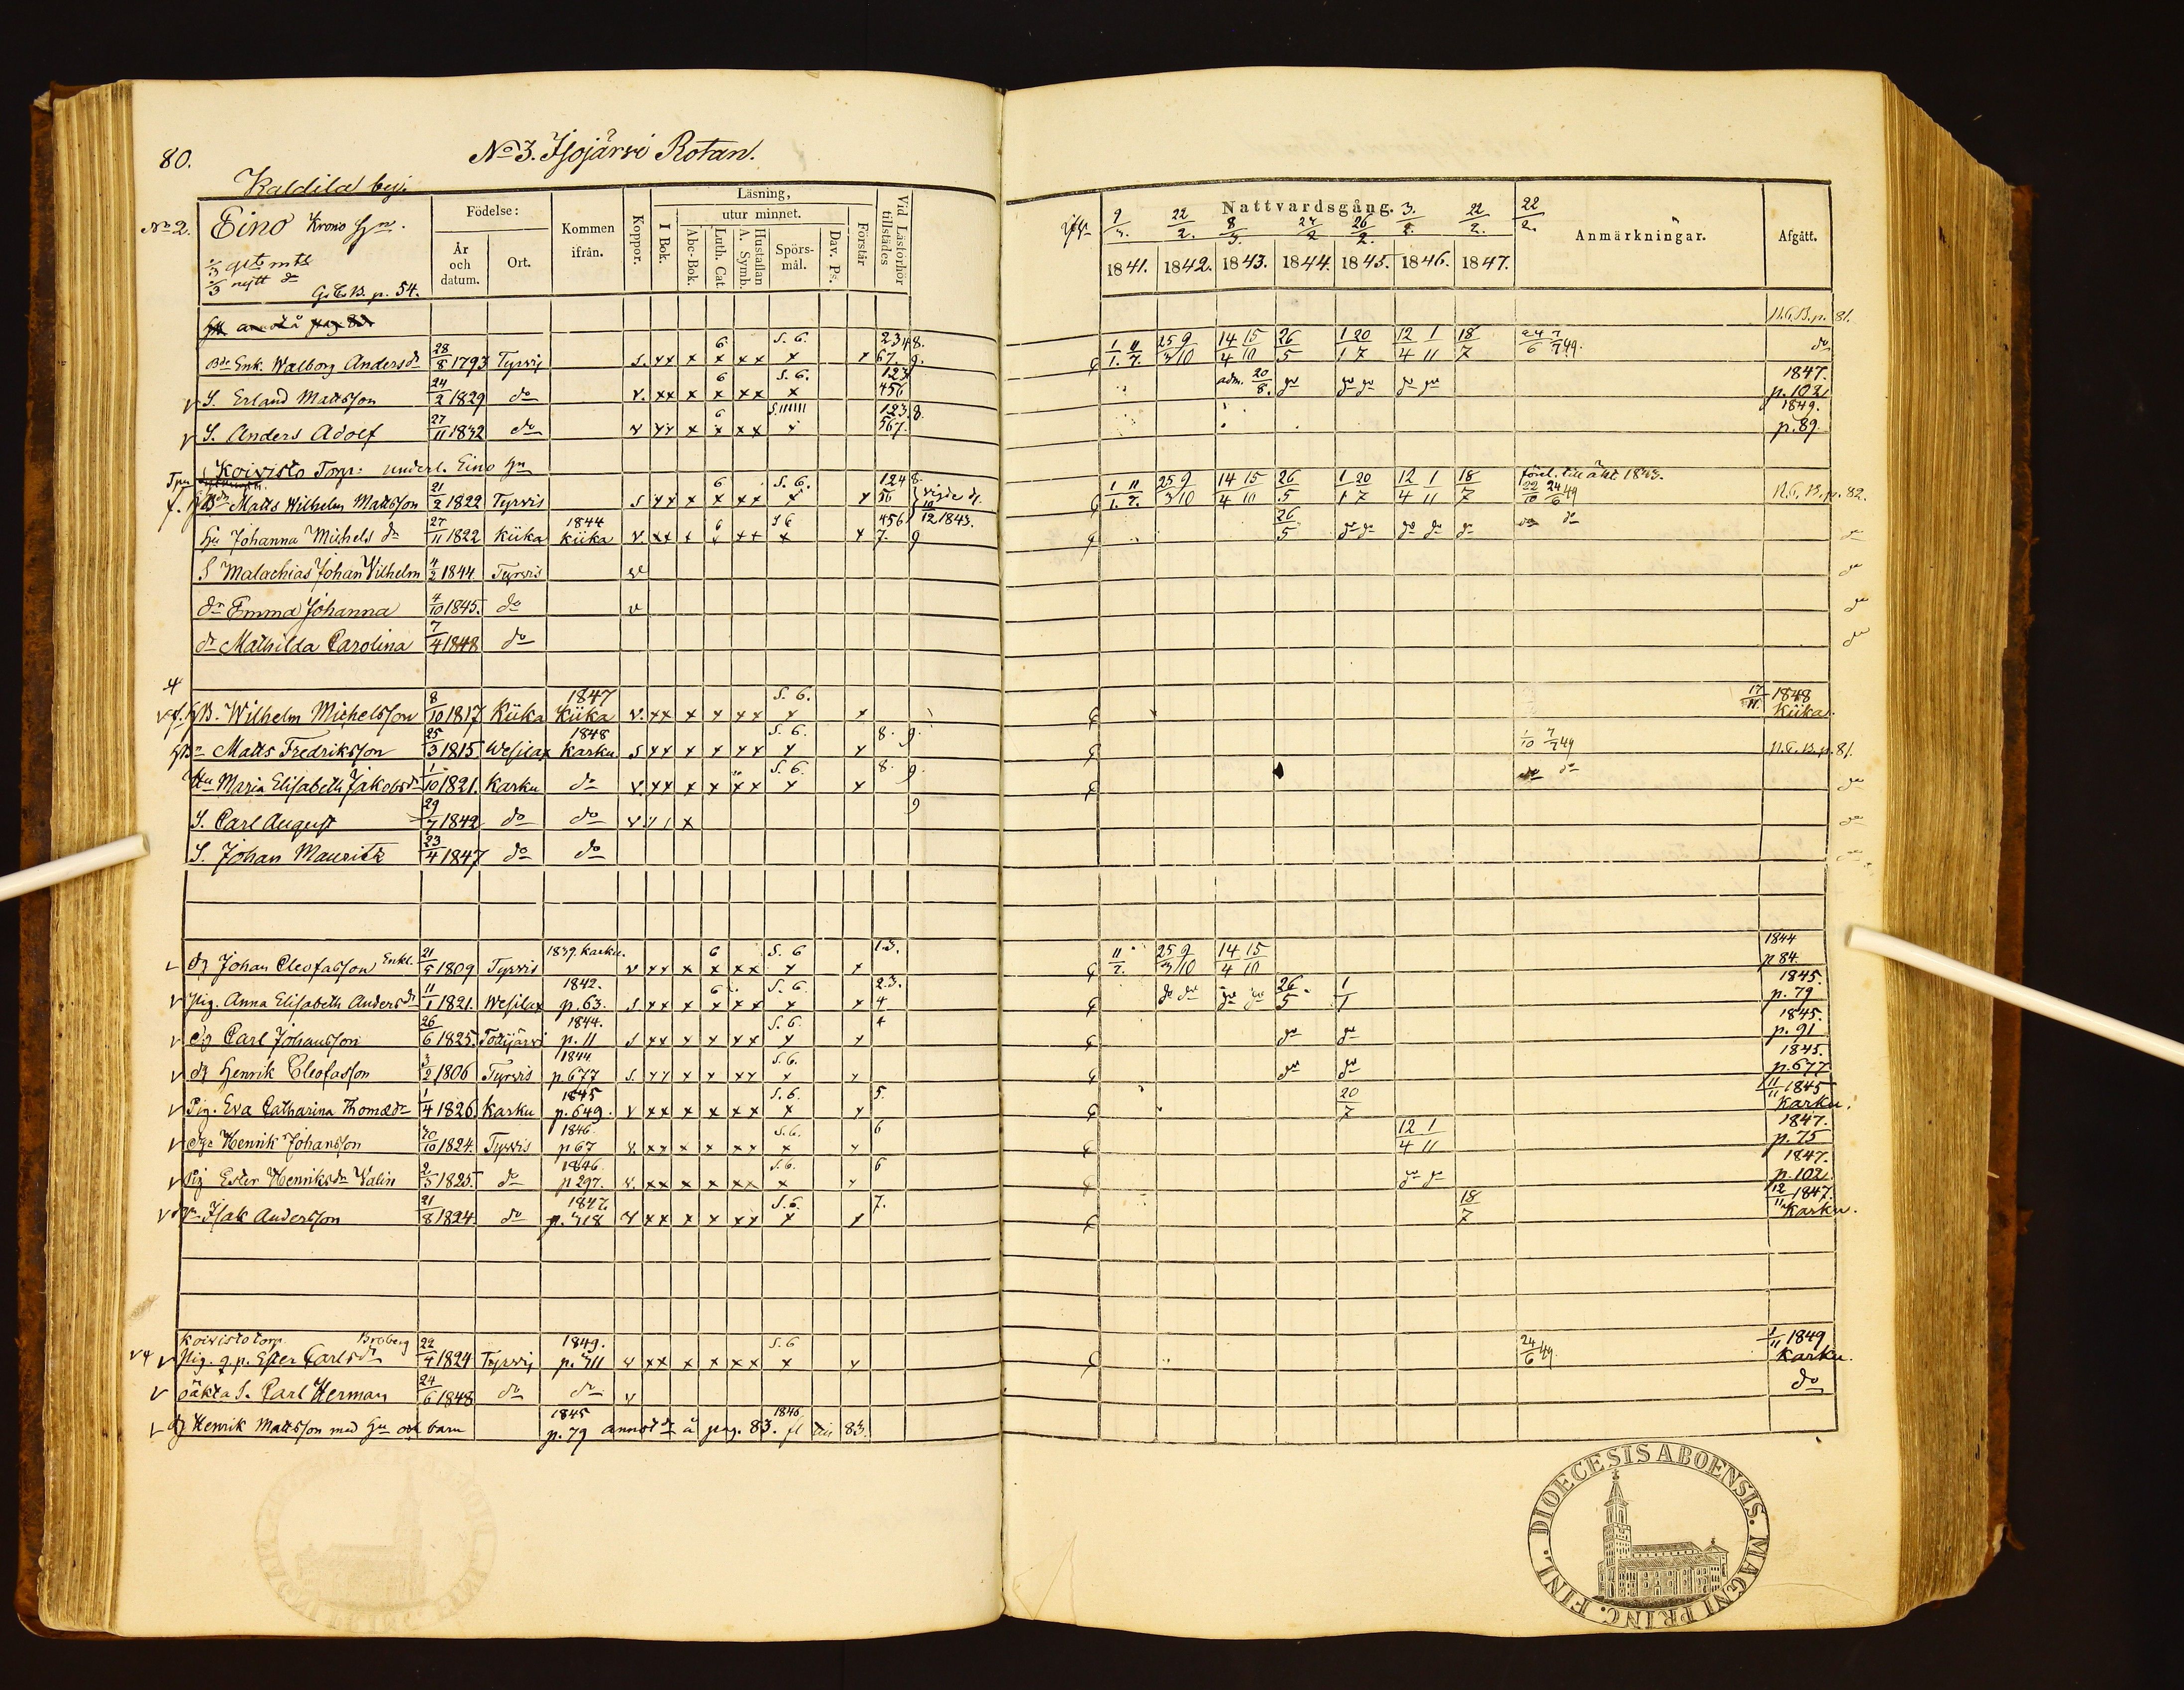 80.
No 3. Isojärvi Rotan.
Kaldila by.
No 2. Eino Krono Hn.
1/3 mtl
1/3 nytt do
G.C.B. p. 54.
Födelse:
År och datum.
Ort.
Kommen ifrån.
Koppor.
Läsning,
I Bok.
utur minnet.
Abc-Bok.
Luth. Cat.
Hustaflan A. Symb.
Spörs-mål.
Dav. Ps.
Förstår
Vid Läsförhör tillstädes
Nattvardsgång.
1841. 1842. 1843. 1844. 1845. 1846. 1847.
Anmärkningar.
Afgått.
N.C.B. p. 81.
Enk. Walborg Andersdr 28/8 1793 Tyrvis S. xx x x xx x x 67. 9. 1/1. 11/7. 25/3 9/10 14/4 15/10 26/5 1/1 20/7 12/4 1/11 18/7 24/6 7/7 49. do
S. Erland Mattsson 24/2 1829 do v. xx x x xx x 456 adm. 20/8. do do do do do 1847. p. 102
S. Anders Adolf 27/11 1832 do v xx x x xx x 123. 567. 8. 1849. p. 89.
Koivisto Torp: underl. Eino Hn
Matts Wilhelm Mattsson 21/2 1822 Tyrvis S xx x x xx x x 124 56 8. vigde d. 1843. 1/1. 11/7. 25/3 9/10 14/4 15/10 26/5 1/1 20/7 12/4 1/11 18/7 22/10 24/6 49 N.C.B. p. 82.
Hu Johanna Michelsdr 27/11 1822 Kiika 1844 Kiika v. xx x x xx x x 456 7. 9 26/5 do do do do do do do do
S Malachias Johan Wilhelm 4/2 1844. Tyrvis v do
dr Emma Johanna 4/10 1845. do v do
dr Mathilda Carolina 7/4 1848 do do
Wilhelm Michelsson 8/10 1817 Kiika 1847 Kiika v. xx x x xx S. 6. x x 17/11. 1848 Kiika.
Matts Fredriksson 25/3 1815 Wesilax 1848 Karku S xx x x xx S. 6. x x 8. 9. 1/10 7/7 49 N.C.B. p. 81.
Hu Maria Elisabeth Jakobsdr 1/10 1821. Karku do v. xx x x xx S. 6. x x 8. 9. do do do
S. Carl August 29/7 1842 do do v x 9 do
S. Johan Mauritz 23/4 1847 do do do
dg Johan Cleofasson Enkl. 21/5 1809 Tyrvis 1839. Karku. v xx x x xx S. 6 x x 1.3. 11/7. 25/3 9/10 14/4 15/10 1844 p 84.
Pig. Anna Elisabeth Andersdr 11/1 1821. Wesilax 1842. p. 63. S xx x x xx S. 6. x x 2.3. 4 do do do do 26/5 1/1 1845. p. 79
dg Carl Johansson 26/6 1825. Tottijärvi 1844. p. 11 S xx x x xx S. 6. x x 4 do do 1845. p. 91
dg Henrik Cleofasson 3/2 1806 Tyrvis 1844. p. 677 S. xx x x xx S. 6. x x do do 1845. p. 677
Pig. Eva Catharina Thomædr 1/4 1826 Karku 1845 p. 649. v xx x x xx S. 6. x x 5. 20/7 11/11 1845 Karku.
Henrik Johansson 30/10 1824. Tyrvis 1846. p 67 v. xx x x xx S. 6. x x 6 12/4 1/11 1847. p. 75
Pig Ester Henriksdr Walin 2/5 1825. do 1846. p 297. v. xx x x xx S. 6. x x 6 do do 1847. p. 102.
Isak Andersson 21/8 1824. do 1847. p. 318 v xx x x xx S. 6. x x 7. 18/7 12/11 1847. Karku.
Koivisto torp. Broberg
Pig. g.p. Ester Carlsdr 22/4 1824 Tyrvis 1849. p. 311 v xx x x xx S. 6 x x 24/6 49. 1/11 1849 Karku.
oäkta S. Carl Herman 24/6 1848 do do v do
dg Henrik Mattsson med Hu och barn 1845 p. 79 annot. å pag. 83. 1846 fl till 83.
DIOECESIS ABOENSIS. MAGNI PRINC. FINL.